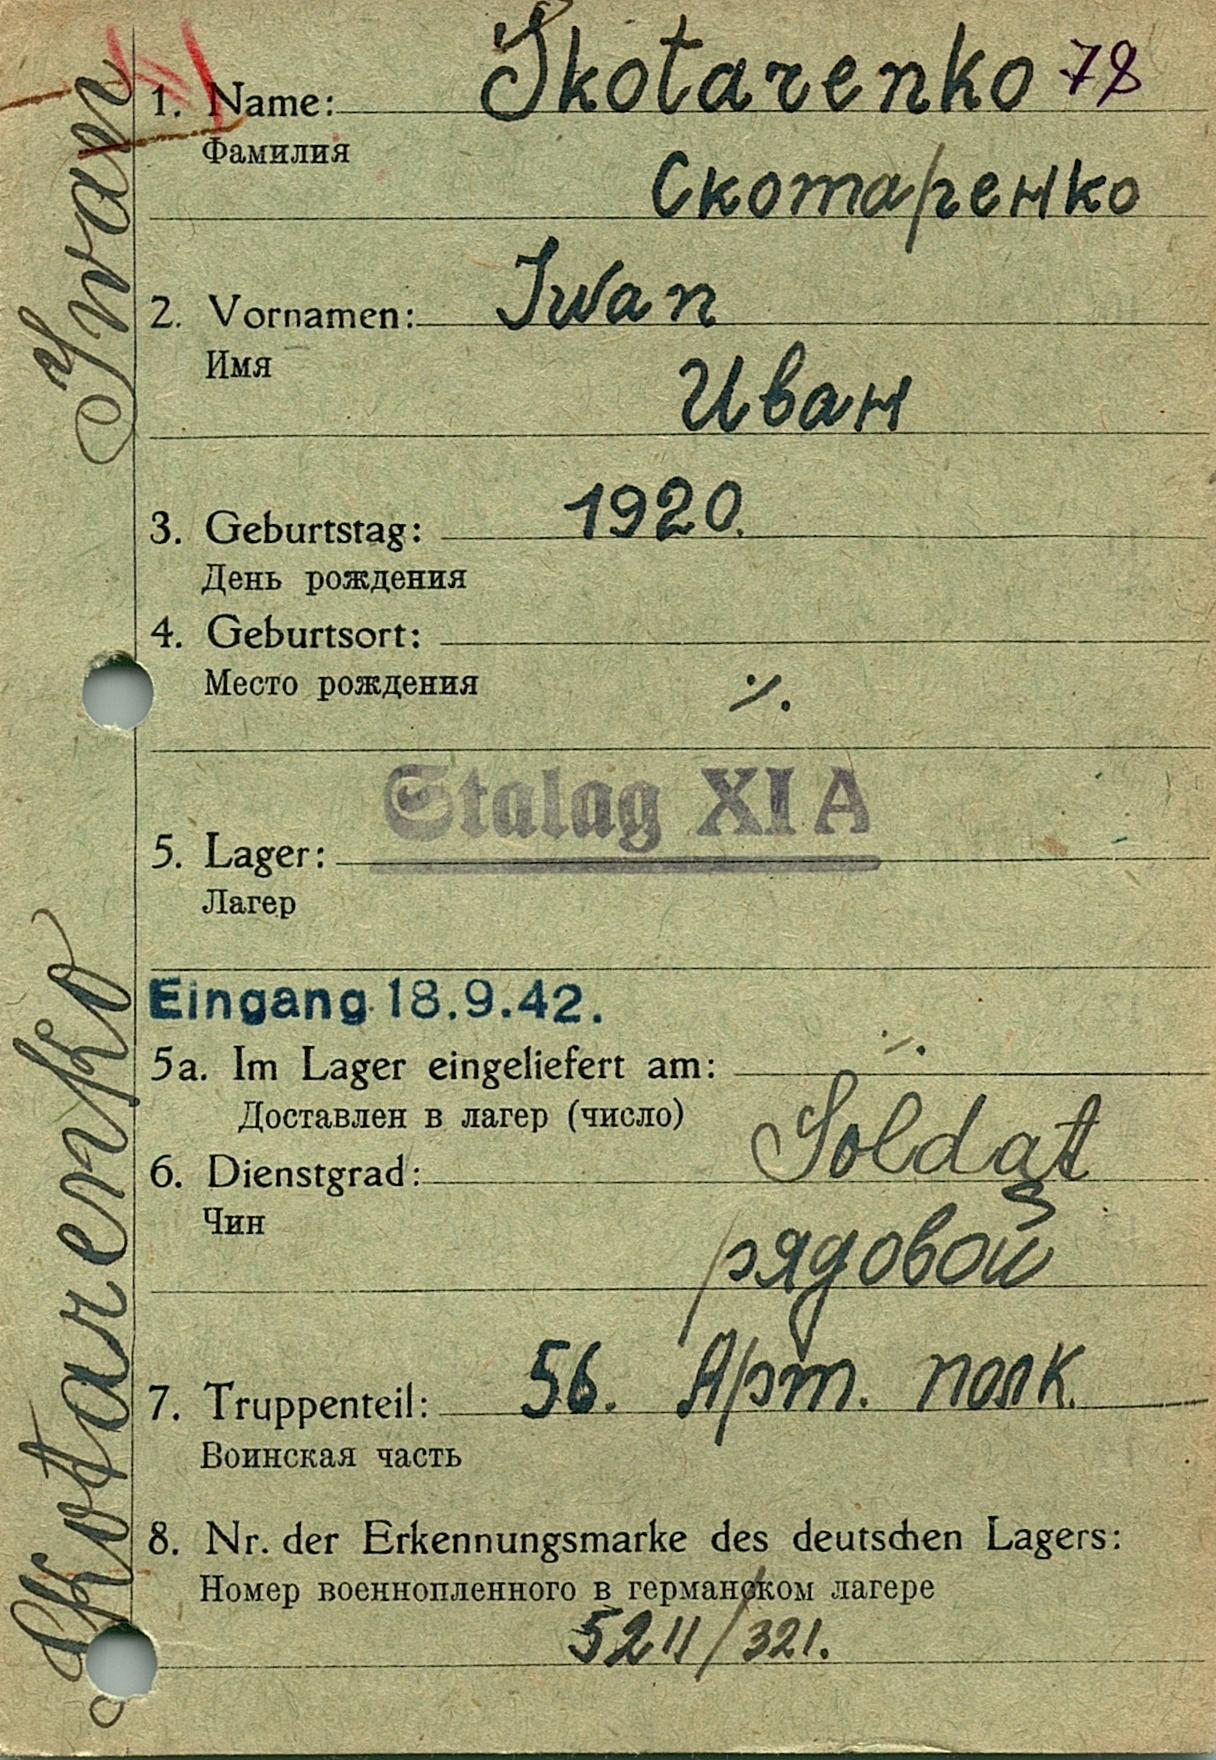 1. Name: Skotarenko 78
Фамилия
Скотаренко
2. Vornamen: Iwan
Имя
Иван
3. Geburtstag: 1920.
День рождения
4. Geburtsort:
Место рождения
·/.
Stalag XI A
5. Lager:
Лагер
Eingang 18.9.42.
·/.
5a. Im Lager eingeliefert am:
Доставлен в лагер (число)
6. Dienstgrad: Soldat
Чин
рядовой
7. Truppenteil: 56. Арт. полк.
Воинская часть
8. Nr. der Erkennungsmarke des deutschen Lagers:
Номер военнопленного в германском лагере
5211/321.
Skotarenko Iwan